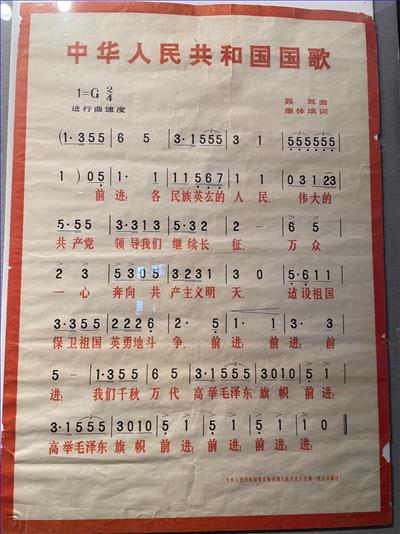 中华人民共和国国歌
1=G 2/4
进行曲速度
聂耳曲
集体填词
(1·355 | 6 5 | 3·1555 | 3·1555 | 555555 |
1 ) 05 | 1· 1 | 11567 | 1 1 | 03123 |
前进! 各民族英雄的人民, 伟大的
5·55 | 3·313 | 5·32 | 2 - | 6 5 |
共产党 领导我们 继续长征, 万众
2 3 | 5305 | 3231 | 3 0 | 5·611 |
一心 奔向共产主义明天, 建设祖国
3·355 | 2226 | 2· 5 | 1· 1 | 3· 3 |
保卫祖国 英勇地斗争。 前进! 前进! 前
5 - | 1·355 | 6 5 | 3·1555 | 3010 | 5 1 |
进! 我们千秋万代 高举毛泽东旗帜 前进!
3·1555 | 3010 | 5 1 | 5 1 | 5 1 | 1 0 ‖
高举毛泽东旗帜 前进! 前进! 前进! 进!
(中华人民共和国第五届全国人民代表大会第一次会议通过)